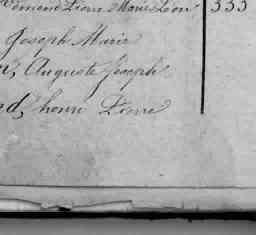 Pierre Marie Léon 333
Joseph Marie
n, Auguste Joseph
nd, henri Pierre